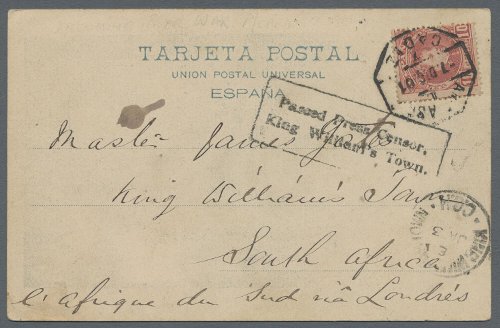 TARJETA POSTAL
UNION POSTAL UNIVERSAL
ESPAÑA
Passed Press Censor,
King William's Town.
Master James
King William's Town
South Africa
l'afrique du Sud via Londrés
CADIZ